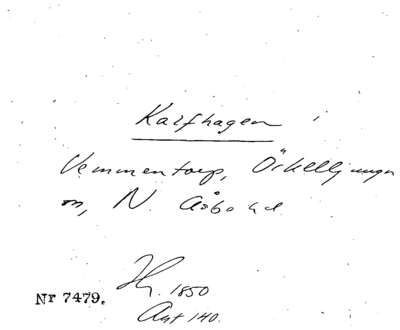 Kalfhagen
Vemmentorp, Örkelljunga
sn, N. Åsbo hd.
Hg. 1850
Nr 7479.
Avt 140.